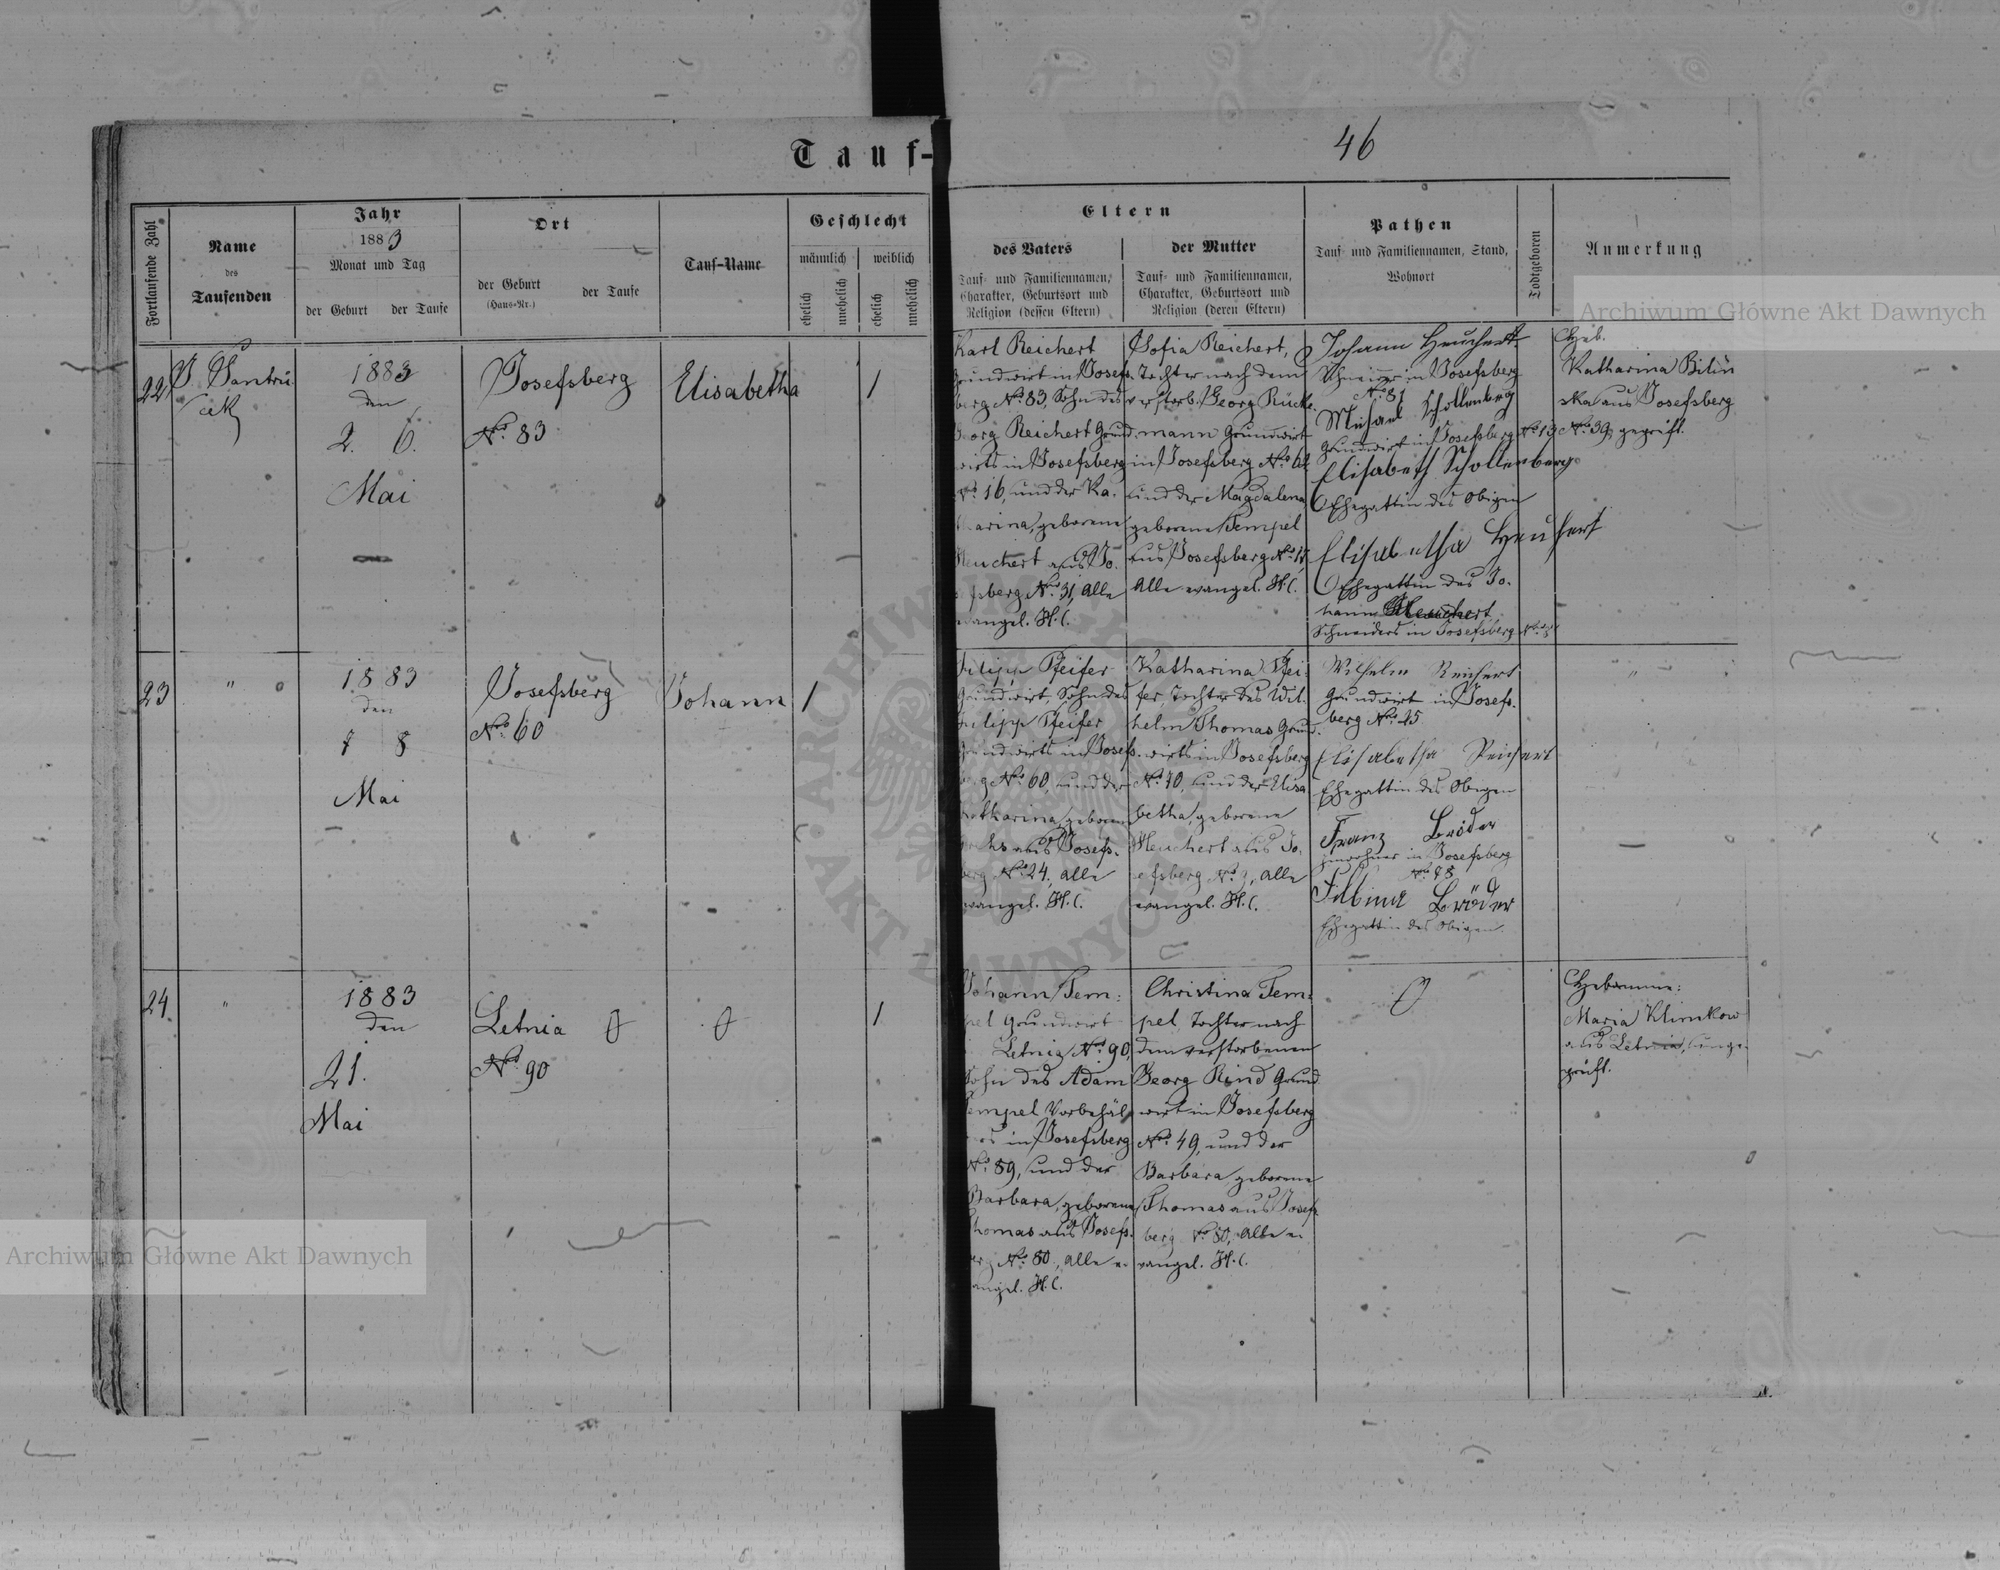 Tauf-
46
Fortlaufende Zahl
Name
des
Taufenden
Jahr
1883
Monat und Tag
der Geburt
der Taufe
Ort
der Geburt
(Haus-Nr.)
der Taufe
Tauf-Name
Geschlecht
männlich
weiblich
ehelich
unehelich
ehelich
unehelich
Eltern
des Vaters
Tauf- und Familiennamen,
Charakter, Geburtsort und
Religion (dessen Eltern)
der Mutter
Tauf- und Familiennamen,
Charakter, Geburtsort und
Religion (deren Eltern)
Pathen
Tauf- und Familiennamen, Stand,
Wohnort
Todtgeboren
Anmerkung
22
1883
den
2. 6.
Mai
Josefsberg
No. 83
Elisabetha
1
Karl Reichert
Grundwirt in Josefs-
berg No. 83, Sohn des
Georg Reichert Grund-
wirts in Josefsberg
No. 16, und der Ka-
tharina, geborene
Heuchert aus Jo-
sefsberg No. 31, alle
evangel. H.C.
Sofia Reichert,
Tochter nach dem
verstorb. Georg Rücke-
mann Grundwirt
in Josefsberg No.
und der Magdalena
geborene Tempel
aus Josefsberg No.
Alle evangel. H.C.
Johann Heuchert
Schneider in Josefsberg
No. 81
Michael Schollenberg
Grundwirt in Josefsberg No. 13
Elisabeth Schollenberg
Ehegattin des Obigen
Elisabetha Heuchert
Ehegattin des Jo-
hann Heuchert
Schneiders in Josefsberg No.
Heb.
Katharina Bilin
ska aus Josefsberg
No. 39, geprüft.
23
"
1883
den
7 8
Mai
Josefsberg
No. 60
Johann
1
Filipp Pfeifer
Grundwirt, Sohn des
Filipp Pfeifer
Grundwirts in Josefs-
berg No. 60, und der
Katharina, geborene
aus Josefs-
berg No. 24, alle
evangel. H.C.
Katharina Pfei-
fer, Tochter des Wil-
helm Thomas Grund-
wirts in Josefsberg
No. 70, und der Elisa-
betha, geborene
Heuchert aus Jo-
sefsberg No. 9, alle
evangel. H.C.
Wilhelm Reichert
Grundwirt in Josefs-
berg No. 45
Elisabetha Reichert
Ehegattin des Obigen
Franz Bröder
Inwohner in Josefsberg
No. 88
Filbina Bröder
Ehegattin des Obigen
"
24
"
1883
den
21.
Mai
Letnia
No. 90
1
Johann Tem-
pel Grundwirt
Letnia No. 90,
Sohn des Adam
Tempel Vorbehäl-
ters in Josefsberg
No. 89, und der
Barbara, geborene
Thomas aus Josefs-
berg No. 80, alle e-
vangel. H.C.
Christina Tem-
pel, Tochter nach
dem verstorbenen
Georg Rind Grund-
wirt in Josefsberg
No. 49, und der
Barbara, geborene
Thomas aus Josefs-
berg No. 80, Alle e-
vangel. H.C.
Hebamme:
Maria Klimkow
aus Letnia, unge-
prüft.
Archiwum Główne Akt Dawnych
Archiwum Główne Akt Dawnych